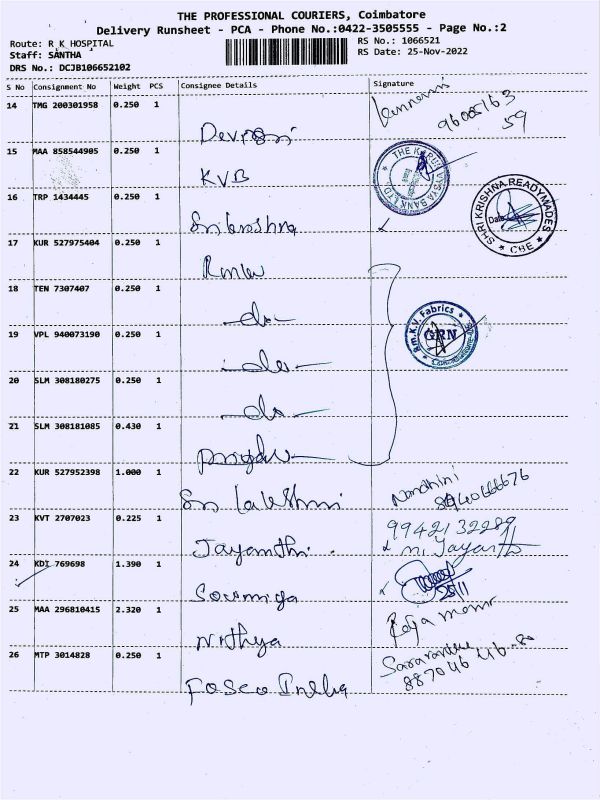 THE PROFESSIONAL COURIERS, Coimbatore
Delivery Runsheet - PCA - Phone No.:0422-3505555 - Page No.:2
Route: R K HOSPITAL
Staff: SANTHA
DRS No.: DCJB106652102
RS No.: 1066521
RS Date: 25-Nov-2022
S No Consignment No Weight PCS Consignee Details Signature
14 TMG 200301958 0.250 1
15 MAA 858544905 0.250 1
KVB
THE KARUR VYSYA BANK LTD
16 TRP 1434445 0.250 1
Sri krishna
SHRI KRISHNA READYMADES
Date
CBE
17 KUR 527975404 0.250 1
Rmkv
18 TEN 7307407 0.250 1
-do-
R.m.K.V. Fabrics
GRN
19 VPL 940073190 0.250 1
-do-
20 SLM 308180275 0.250 1
-do-
21 SLM 308181085 0.430 1
22 KUR 527952398 1.000 1
Sri Lakshmi
Nandhini
23 KVT 2707023 0.225 1
Jayanthi
9942132289
Jayanth
24 KDI 769698 1.390 1
Sowmiya
25/11
25 MAA 296810415 2.320 1
Nithya
Raja
26 MTP 3014828 0.250 1
Fosco India
88704